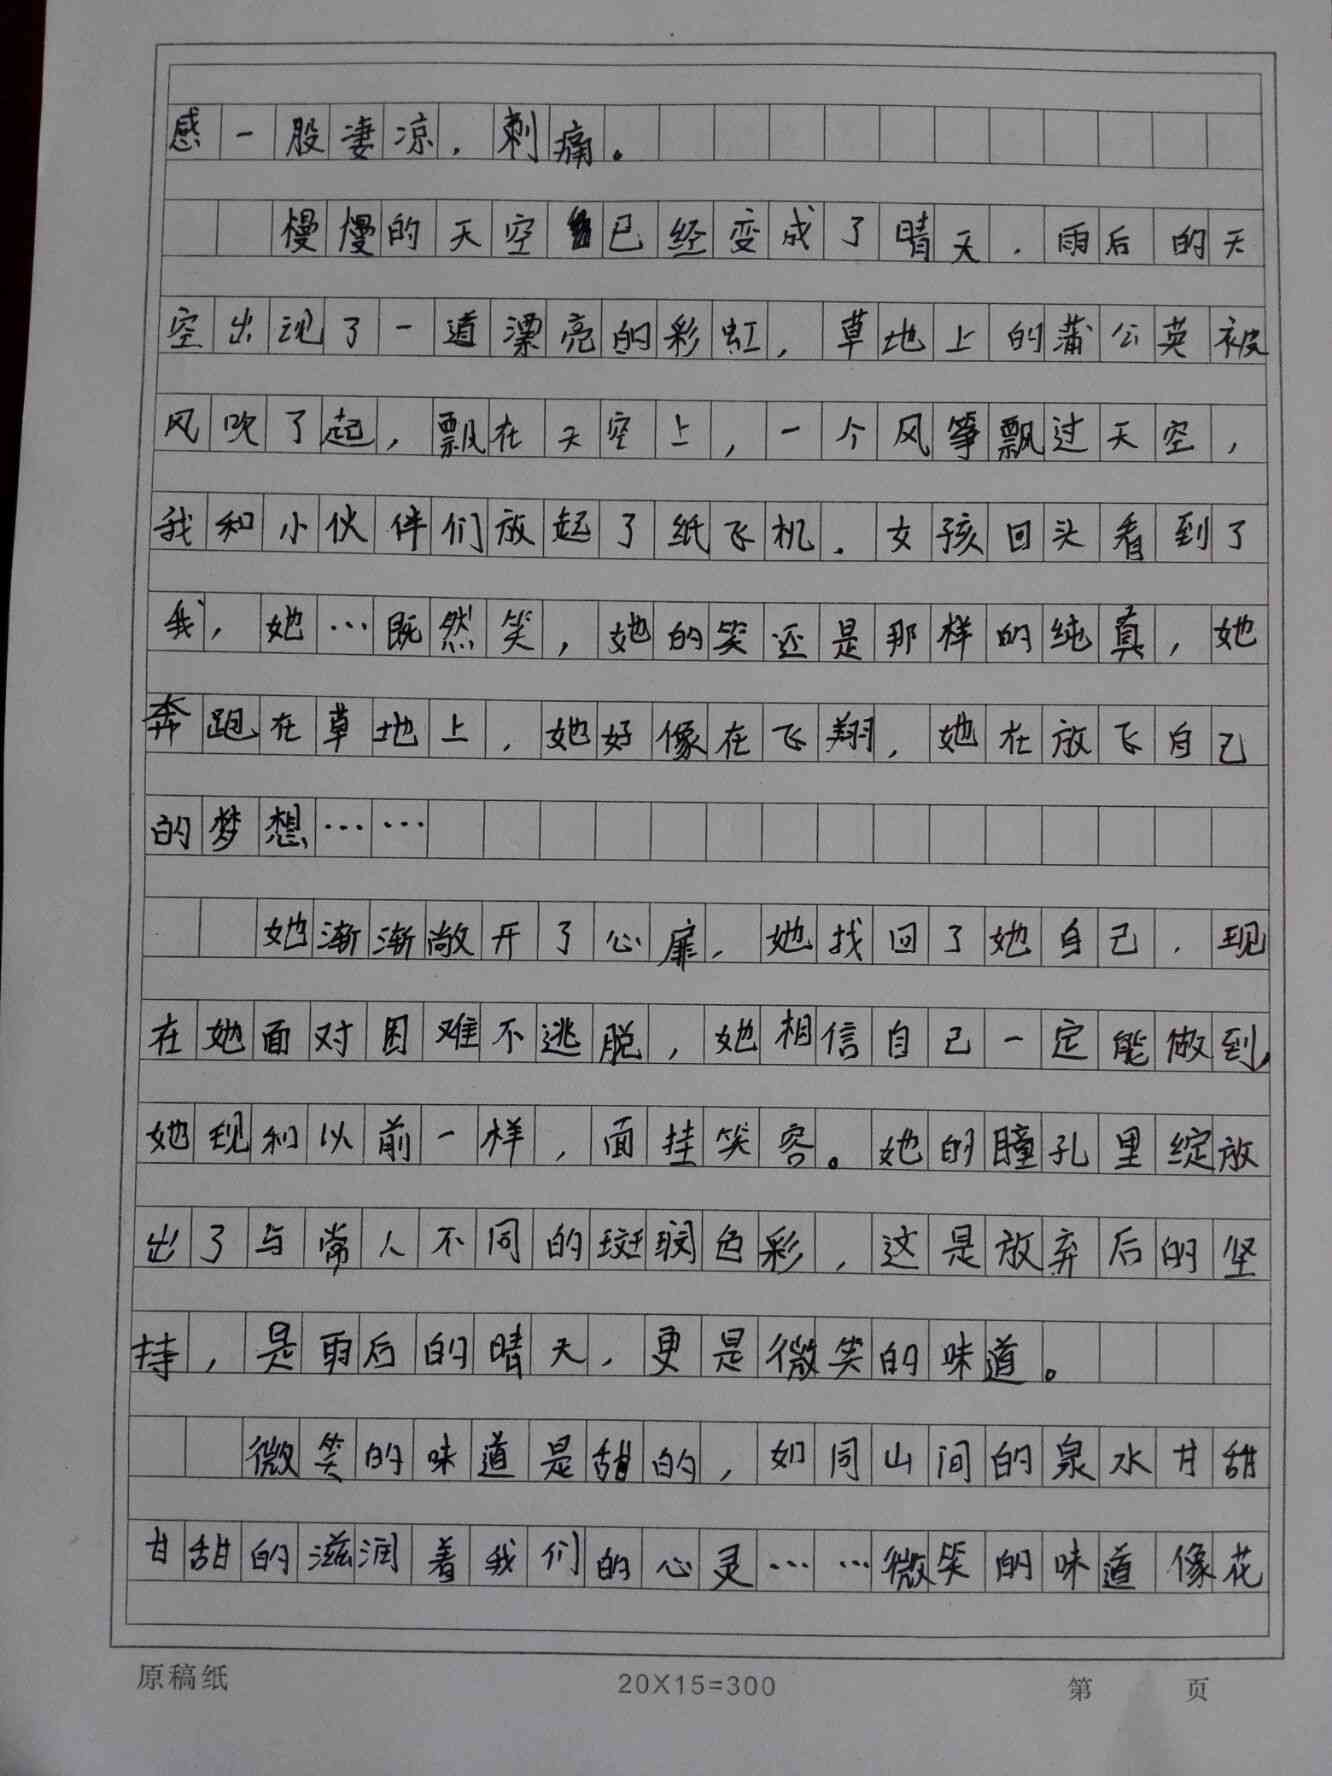 感一股凄凉，刺痛。
慢慢的天空已经变成了晴天．雨后的天
空出现了一道漂亮的彩虹，草地上的蒲公英被
风吹了起，飘在天空上，一个风筝飘过天空，
我和小伙伴们放起了纸飞机．女孩回头看到了
我，她…既然笑，她的笑还是那样的纯真，她
奔跑在草地上，她好像在飞翔，她在放飞自己
的梦想……
她渐渐敞开了心扉，她找回了她自己．现
在她面对困难不逃脱，她相信自己一定能做到，
她现和以前一样，面挂笑容。她的瞳孔里绽放
出了与常人不同的斑斓色彩，这是放弃后的坚
持，是雨后的晴天，更是微笑的味道。
微笑的味道是甜的，如同山间的泉水甘甜
甘甜的滋润着我们的心灵……微笑的味道像花
原稿纸 20X15=300 第 页